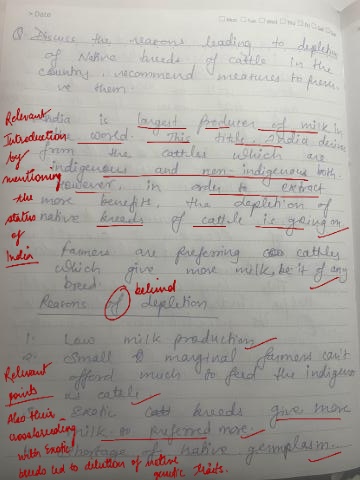 > Date
□Mon □Tue □Wed □Thu □Fri □Sat □Sun
Q Discuss the reasons leading to depletion
of Native breeds of cattle in the
country, recommend measures to prese
ve them.
Relevant
Introduction
by
mentioning
the
status
of
India
India is largest producer of milk in
the world. This title, India derive
from the cattles which are
indigenous and non-indigenous both.
However, in order to extract
more benefits, the depletion of
native breeds of cattle is going on
Farmers are preferring cattles
which give more milk, be it of any
breed.
behind
Reasons of depletion
1. Low milk production
2. Small & marginal farmers can't
afford much to feed the indigeno
us catel
Exotic breeds give more
milk so preferred more.
Shortage of native germplasm
Relevant
points
Also their
crossbreeding
with Exotic
breeds led to dilution of native
genetic traits.